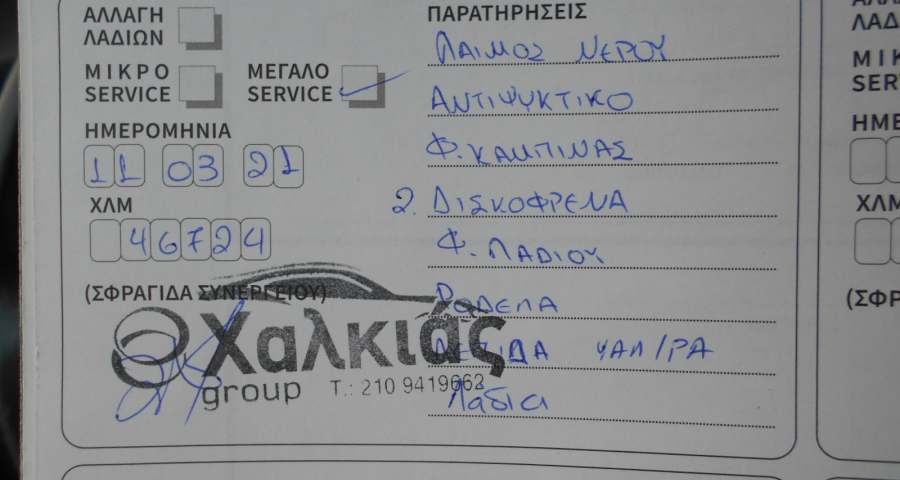 ΑΛΛΑΓΗ
ΛΑΔΙΩΝ
ΜΙΚΡΟ
SERVICE
ΜΕΓΑΛΟ
SERVICE
ΗΜΕΡΟΜΗΝΙΑ
11 03 21
ΧΛΜ
46724
(ΣΦΡΑΓΙΔΑ ΣΥΝΕΡΓΕΙΟΥ)
Χαλκιάς
group Τ.: 210 9419662
ΠΑΡΑΤΗΡΗΣΕΙΣ
ΛΑΙΜΟΣ ΝΕΡΟΥ
ΑΝΤΙΨΥΚΤΙΚΟ
Φ. ΚΑΜΠΙΝΑΣ
2. ΔΙΣΚΟΦΡΕΝΑ
Φ. ΛΑΔΙΟΥ
ΡΟΔΕΛΑ
ΥΑΛ/ΡΑ
Λαδια
ΛΑΔΙ
ΜΙΚ
SER
ΗΜΕ
ΧΛΜ
(ΣΦΡ